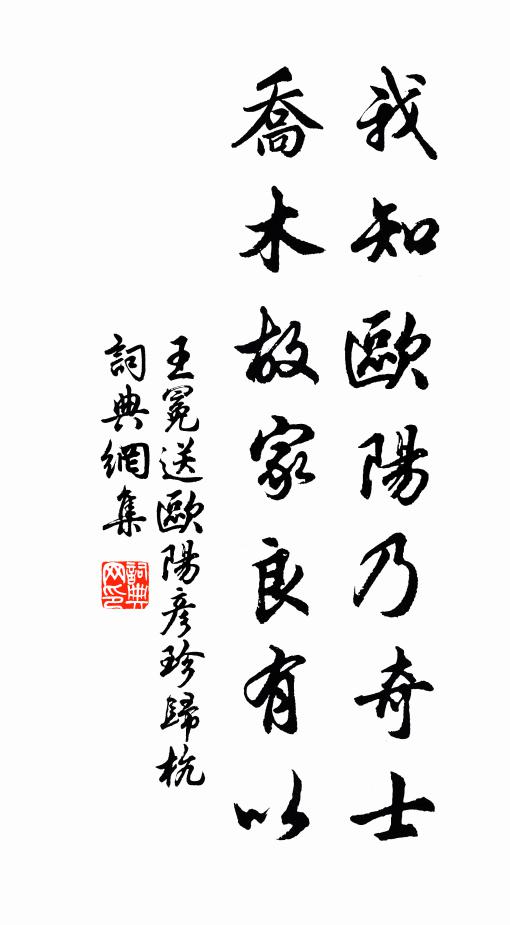 我知歐陽乃奇士
喬木故家良有以
王冕送歐陽彦珍歸杭
詞典網集
詞典网印